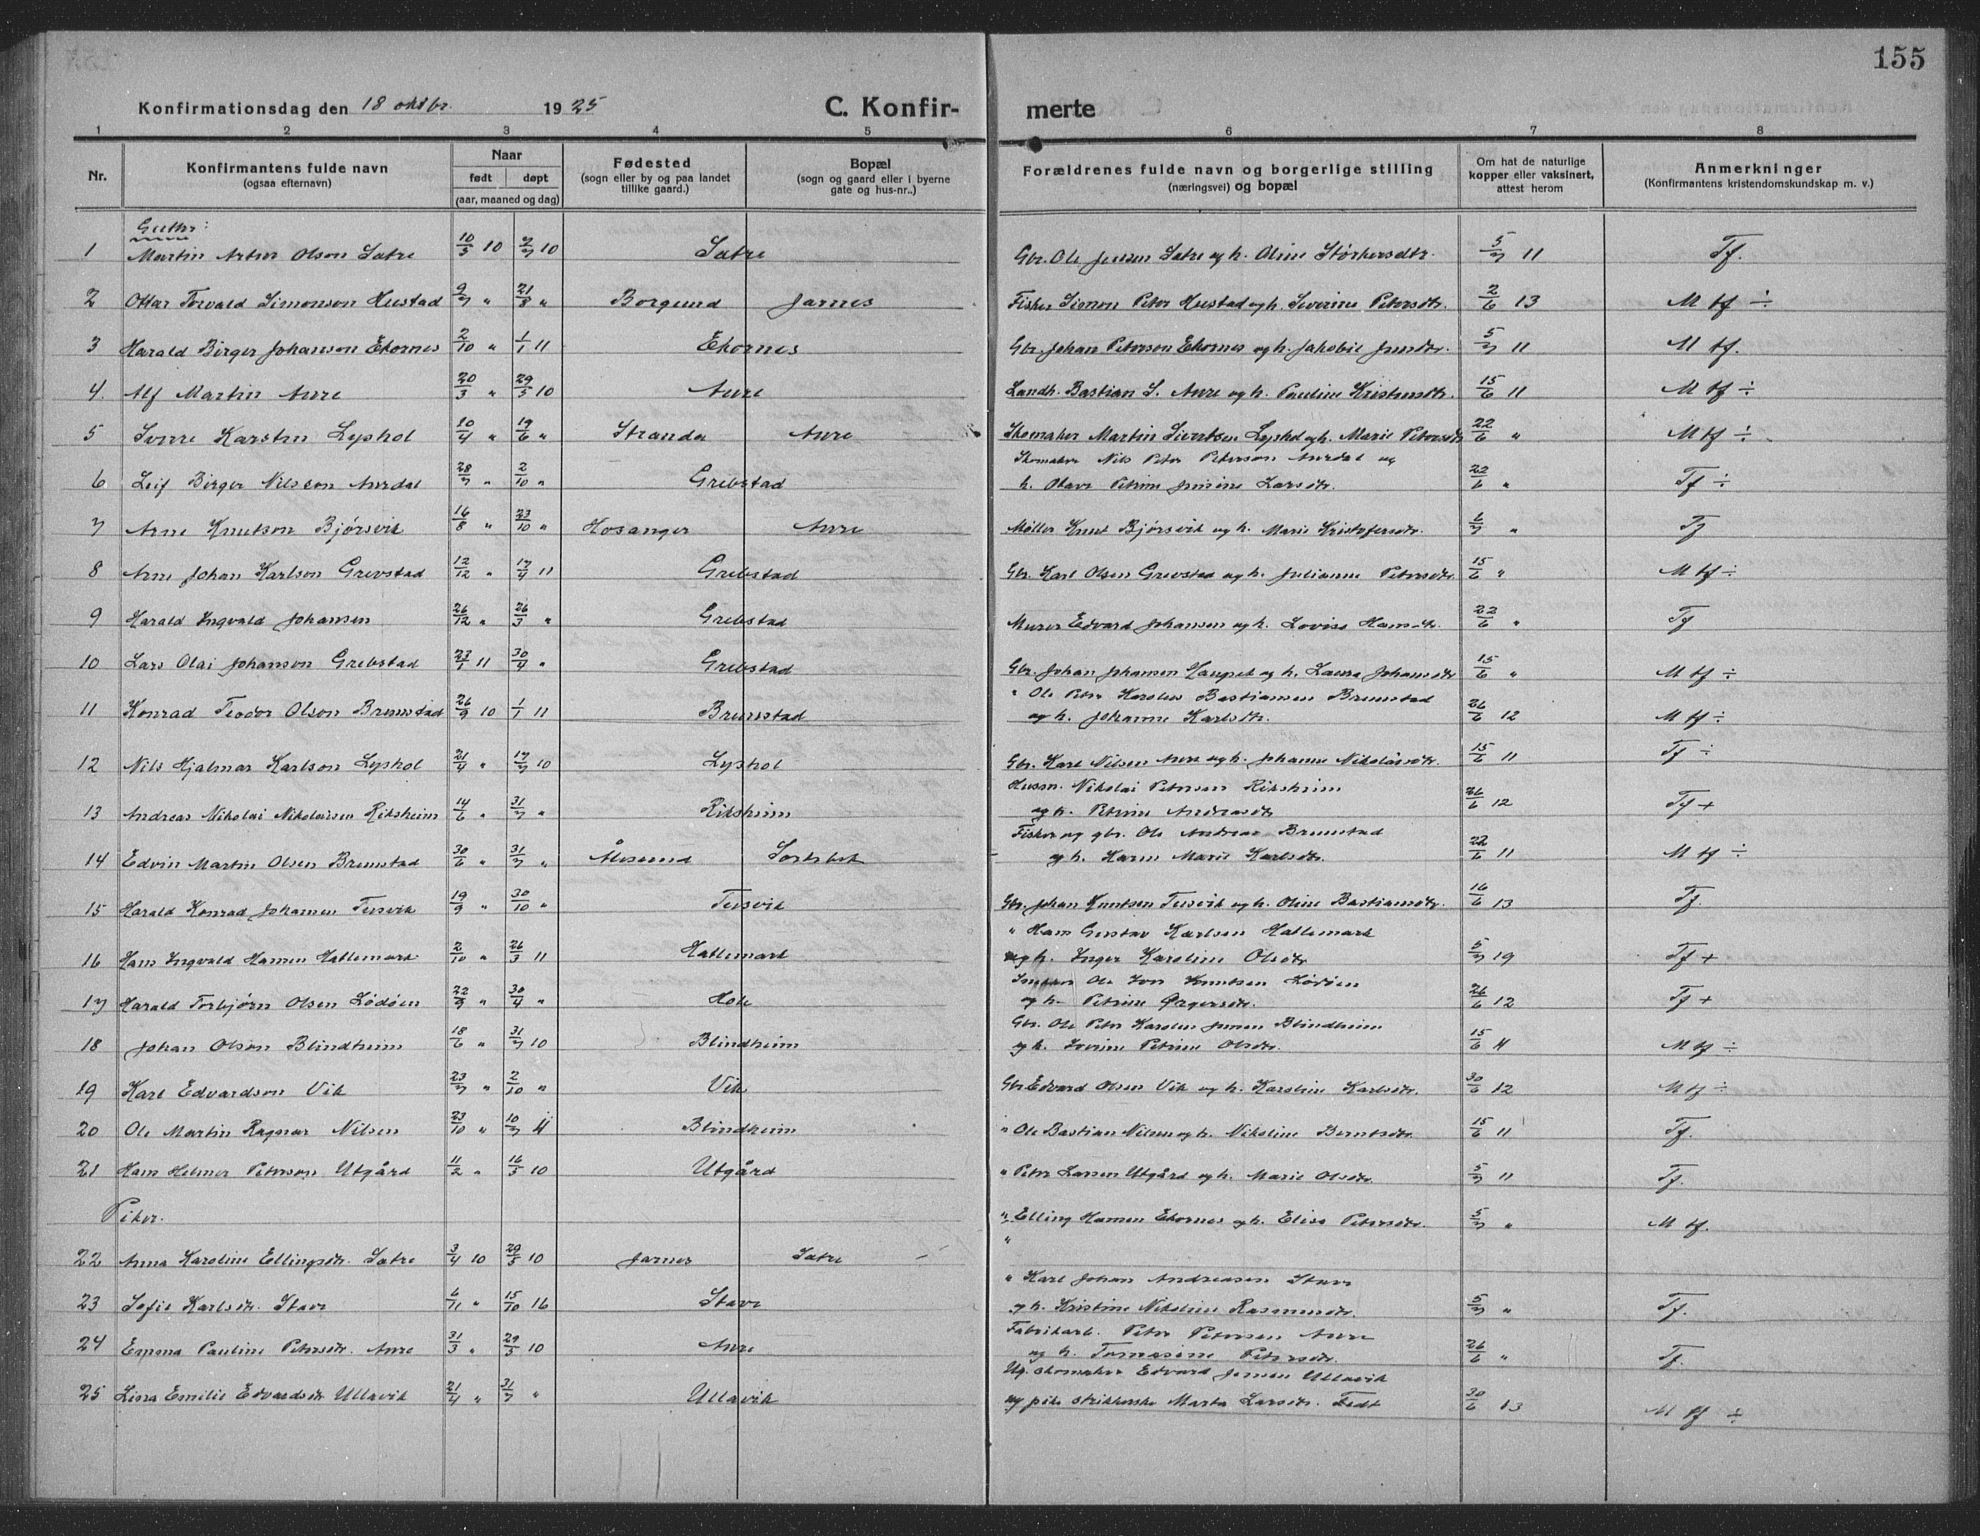 155
Konfirmationsdag den 18 oktbr. 1925 C. Konfir- merte
1 2 3 4 5 6 7 8
Nr. Konfirmantens fulde navn (ogsaa efternavn) Naar født døpt (aar, maaned og dag) Fødested (sogn eller by og paa landet tillike gaard.) Bopæl (sogn og gaard eller i byerne gate og hus-nr..) Forældrenes fulde navn og borgerlige stilling (næringsvei) og bopæl Om hat de naturlige kopper eller vaksinert, attest herom Anmerkninger (Konfirmantens kristendomskundskap m. v.)
Gutter:
1 Martin Artur Olson Satre 10/5 10 2/7 10 Satre Gbr. Ole Jensen Satre og h. Oline Størkersdtr. 5/7 11 Tf.
2 Ottar Torvald Simonson Hustad 9/7 " 21/8 " Borgund Jarnes Fisker Simon Peter Hustad og h. Severine Petersdtr. 2/6 13 M tf ÷
3 Harald Birger Johanson Ekornes 2/10 " 1/1 11 Ekornes Gbr. Johan Peterson Ekornes og h. Jakobie Jensdtr. 5/7 11 M tf.
4. Alf Martin Aure 20/3 " 29/5 10 Aure Landh. Bastian S. Aure og h. Pauline Kristensdtr. 15/6 11 M tf ÷
5 Sverre Karsten Lyshol 10/4 " 19/6 " Stranda Aure Skomaker Martin Sivertsen Lyshol og h. Marie Petersdtr 22/6 " M tf ÷
Skomaker Nils Peter Peterson Aurdal og
6 Leif Birger Nilsson Aurdal 28/7 " 2/10 " Grebstad h. Olave Petrine Jensine Larsdtr. 22/6 " Tf ÷
7 Arne Knutson Bjørsvik 16/8 " 23/10 " Hosanger Aure Møller Knut Bjørsvik og h. Marie Kristofersdtr. 6/7 " Tf
8 Arne Johan Karlson Grevstad 12/12 " 17/4 11 Grebstad Gbr. Karl Olsen Grevstad og h. Julianne Petersdtr. 15/6 " M tf ÷
9 Harald Ingvald Johansen 26/12 " 26/3 " Grebstad Murer Edvard Johansen og h. Lovise Hansdtr. 22/6 " Tf
10 Lars Olai Johanson Grebstad 23/1 11 30/4 " Grebstad Gbr. Johan Johansen og h. Laura Johansdtr 15/6 " M tf ÷
" Ole Peter Karolus Bastiansen Brunstad
11 Konrad Teodor Olson Brunstad 26/9 10 1/1 11 Brunstad og h. Johanne Karlsdtr. 26/6 12 M tf ÷
12 Nils Hjalmar Karlson Lyshol 21/4 " 17/7 10 Lyshol Gbr. Karl Nilsen Aure og h. Johanne Nikolaisdtr. 15/6 11 Tf ÷
Husm. Nikolai Petersen Riksheim
13 Andreas Nikolai Nikolaisen Riksheim 14/6 " 31/7 " Riksheim og h. Petrine Andreasdtr 26/6 12 Tf +
Fisker og gbr. Ole Andreas Brunstad
14 Edvin Martin Olsen Brunstad 30/6 " 31/7 " Ålesund og h. Karen Marie Karlsdtr. 22/6 11 M tf ÷
15 Harald Konrad Johansen Tusvik 19/9 " 30/10 " Tusvik Gbr. Johan Knutsen Tusvik og h. Oline Bastiansdtr. 16/6 13 Tf.
" Hans Gustav Karlsen Hatlemark
16 Hans Ingvald Hansen Hatlemark 2/10 " 26/3 11 Hatlemark og h. Inger Karoline Olsdtr 5/7 19 Tf +
Ole Knutsen Lødøen
17 Harald Torbjørn Olsen Lødøen 22/9 " 30/4 " Hole og h. Petrine 26/6 12 Tf +
Gbr. Ole Peter Karolus Jensen Blindheim
18 Johan Olson Blindheim 18/6 " 31/7 10 Blindheim og h. Petrine Olsdtr. 15/6 M tf ÷
19 Karl Edvardson Vik 23/7 " 2/10 " Vik Gbr Edvard Olsen Vik og h. Karoline Karlsdtr. 30/6 12 M tf ÷
20 Ole Martin Ragnar Nilsen 23/10 " 10/7 Blindheim " Ole Bastian Nilsen og h. Nikoline Berntsdtr. 15/6 11 Tf.
21 Hans Helmer Peterson Utgård 11/2 " 16/5 10 Utgård " Peter Larsen Utgård og h. Marie Olsdtr. 5/7 11 Tf.
Piker.
" Elling Hansen Ekornes og h. Elise Petersdtr. 5/7 " M tf.
22 Anna Karoline Ellingsdtr. Satre 3/4 10 29/5 10 Jarnes Satre
" Karl Johan Andreasen Stave
23 Sofie Karlsdtr. Stave 6/11 " 15/10 16 Stave og h. Kristine Nikoline Rasmusdtr. 5/7 " Tf.
Fabrikarb. Peter Petersen Aure
24 Emma Pauline Petersdtr. Aure 31/3 " 29/5 10 Aure og h. Tomasine Petersdtr. 26/6 " Tf.
Ug. skomaker Edvard Jensen Ullavik
25 Emilie Edvardsdtr Ullavik 21/4 " 31/7 " Ullavik og pike strikkerske Marta Larsdtr. Fedt 30/6 13 M tf ÷